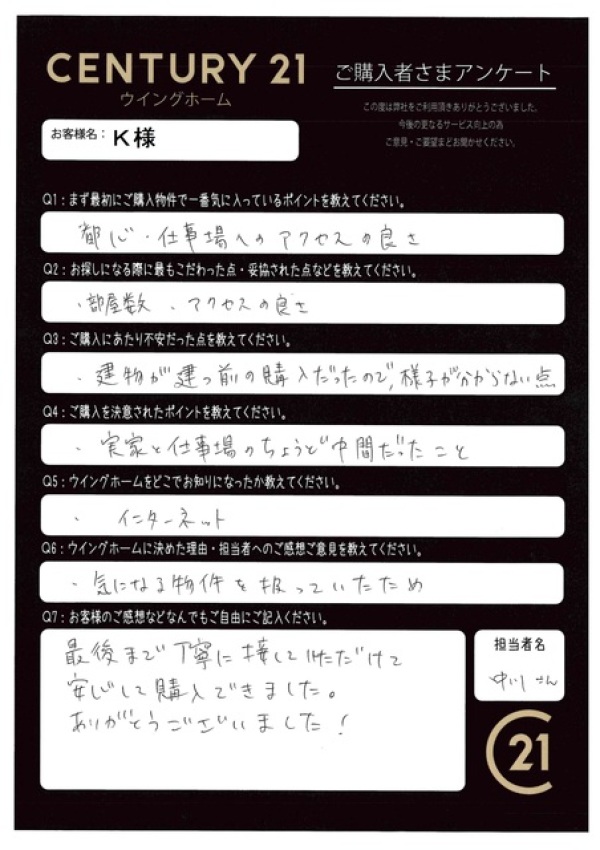 CENTURY 21
ウイングホーム
ご購入者さまアンケート
この度は弊社をご利用頂きありがとうございました。
今後の更なるサービス向上の為
ご意見・ご要望をお聞かせください。
お客様名: K様
Q1:まず最初にご購入物件で一番気に入っているポイントを教えてください。
都心・仕事場へのアクセスの良さ
Q2:お探しになる際に最もこだわった点・妥協された点などを教えてください。
・部屋数 ・アクセスの良さ
Q3:ご購入にあたり不安だった点を教えてください。
・建物が建つ前の購入だったので,様子が分からない点
Q4:ご購入を決意されたポイントを教えてください。
・実家と仕事場のちょうど中間だったこと
Q5:ウイングホームをどこでお知りになったか教えてください。
・インターネット
Q6:ウイングホームに決めた理由・担当者へのご感想ご意見を教えてください。
・気になる物件を扱っていたため
Q7:お客様のご感想などなんでもご自由にご記入ください。
最後まで丁寧に接していただけて
安心して購入できました。
ありがとうございました!
担当者名
中川さん
21